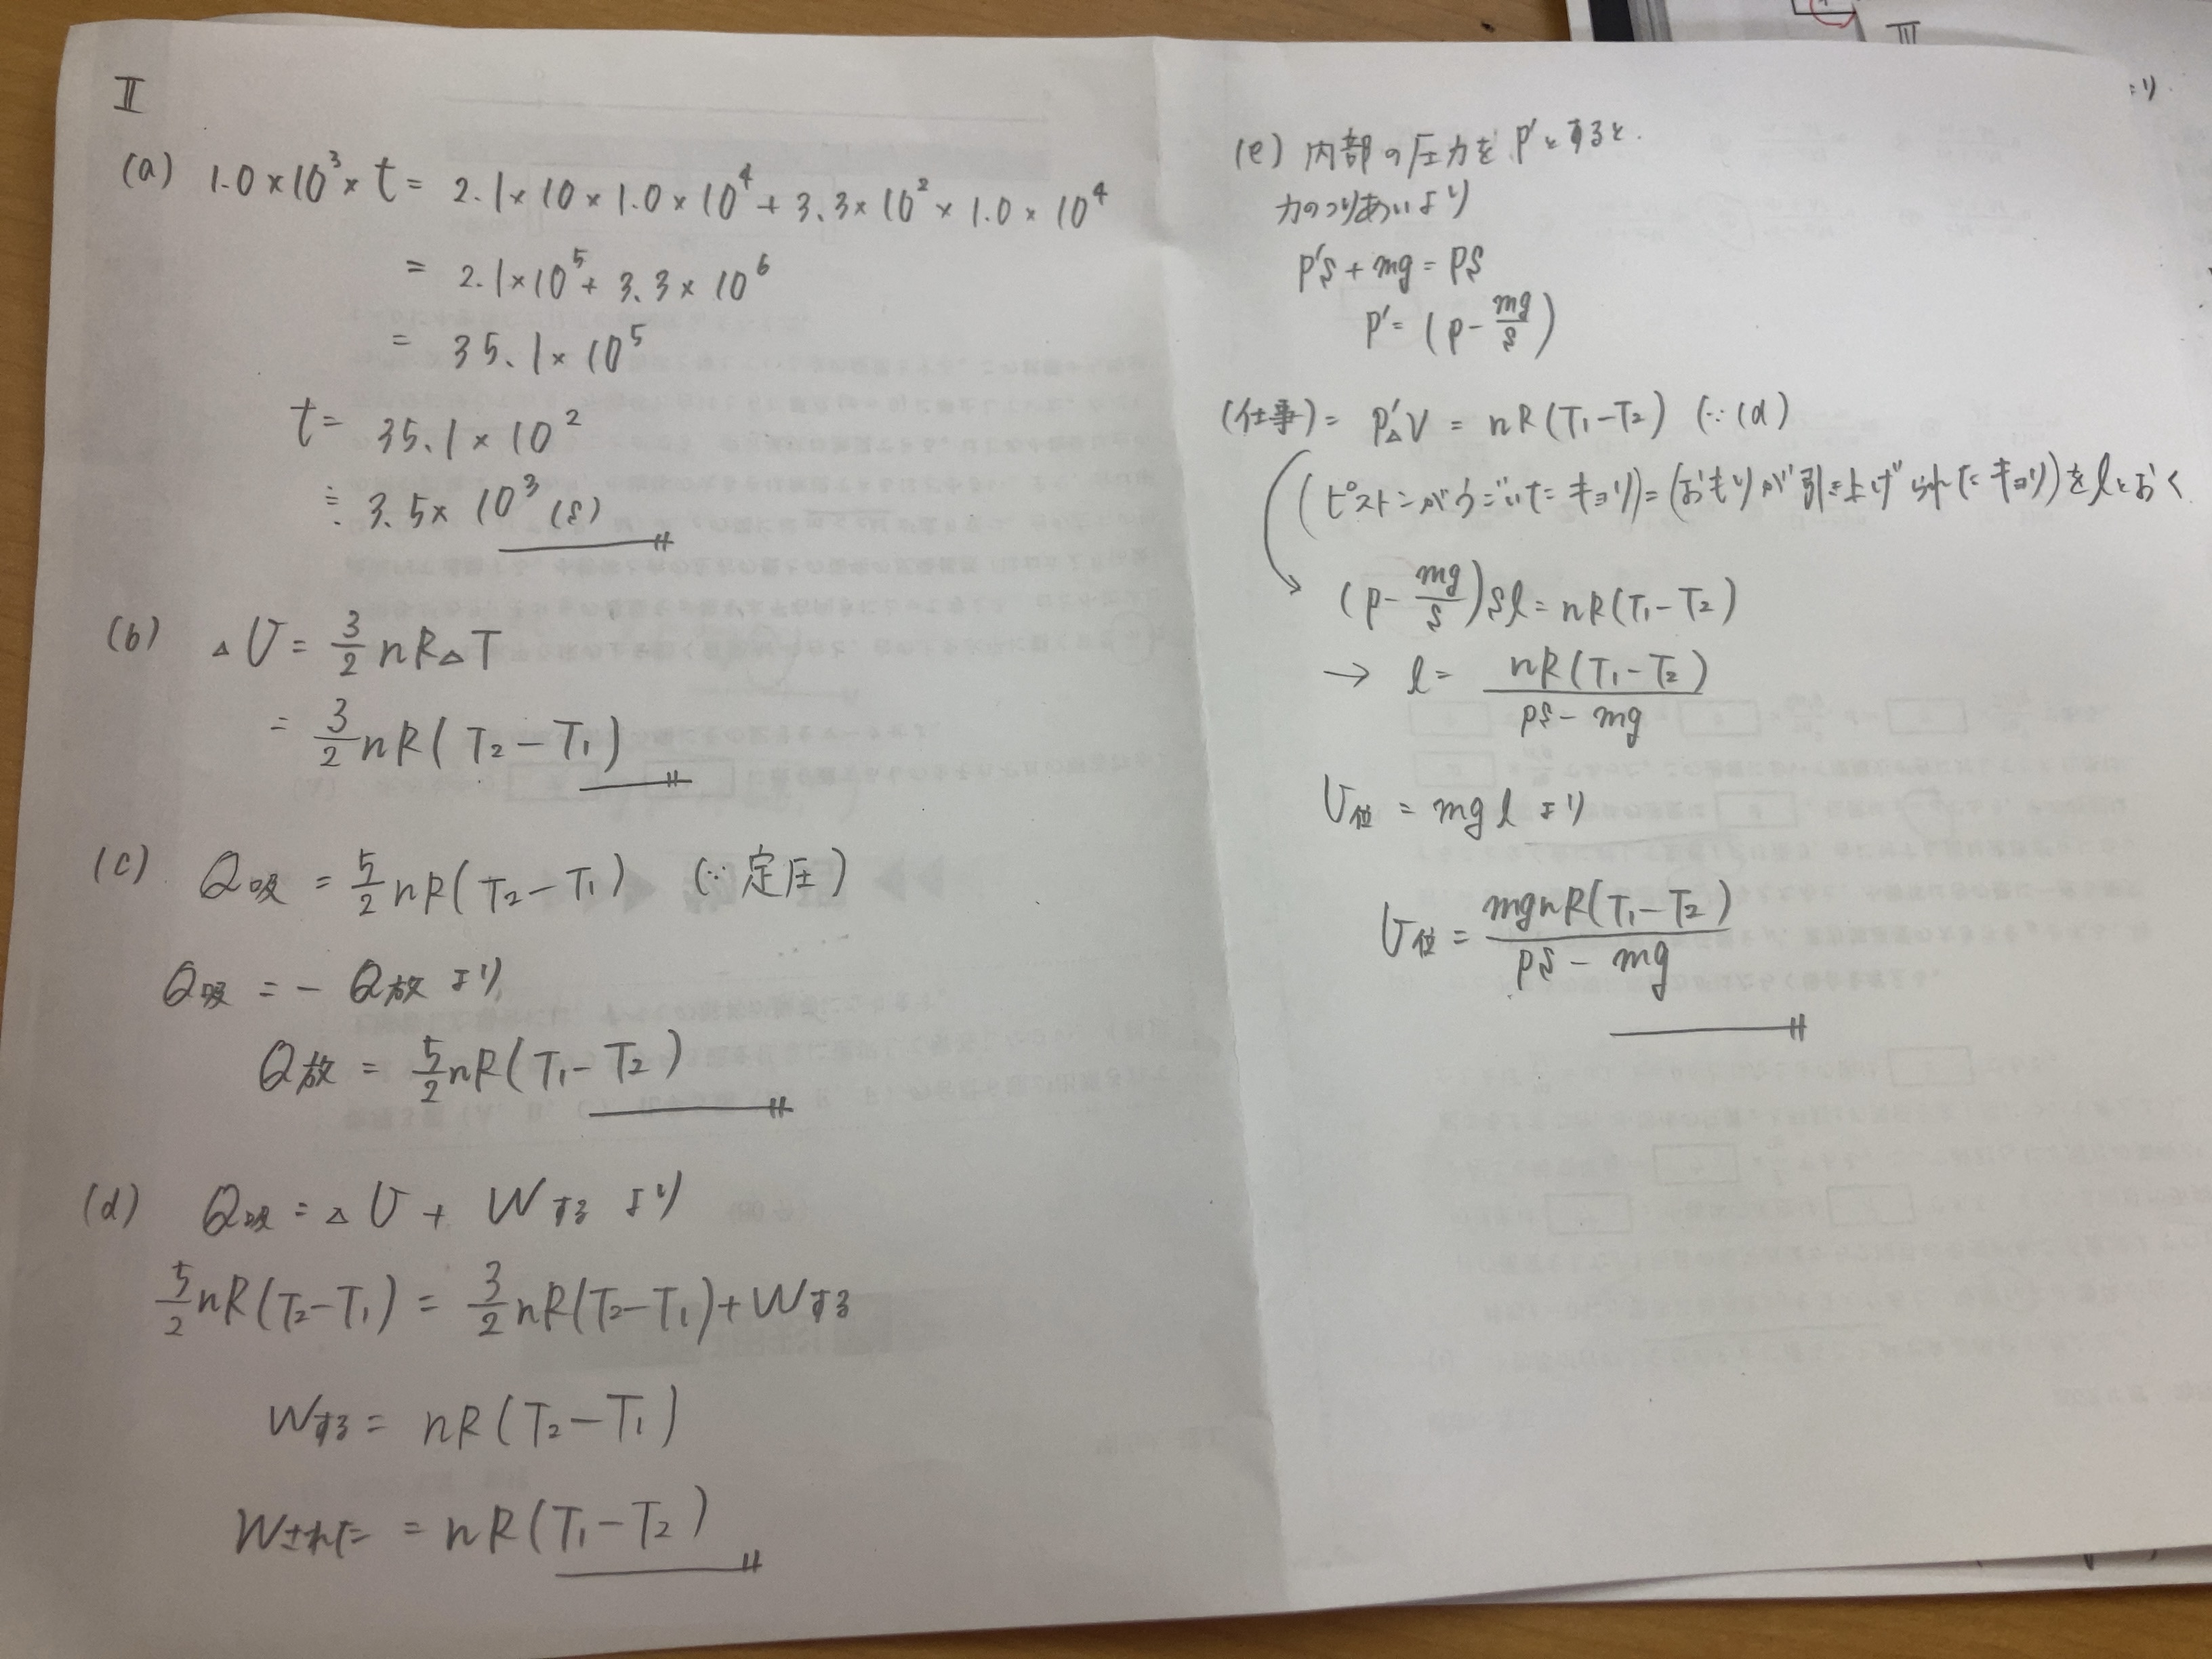 II
(a) 1.0×10³×t = 2.1×10×1.0×10⁴+3.3×10²×1.0×10⁴
= 2.1×10⁵+3.3×10⁶
= 35.1×10⁵
t= 35.1×10²
≒ 3.5×10³ (s)
(b) △U = 3/2 nR△T
= 3/2 nR(T₂-T₁)
(c) Q吸 = 5/2 nR(T₂-T₁) (∵定圧)
Q吸 = - Q放 より
Q放 = 5/2 nR(T₁-T₂)
(d) Q吸 = △U + Wする より
5/2 nR(T₂-T₁) = 3/2 nR(T₂-T₁)+Wする
Wする = nR(T₂-T₁)
Wされた = nR(T₁-T₂)
(e) 内部の圧力をP'とすると.
力のつりあいより
P'S+mg = PS
P' = (P-mg/S)
(仕事) = P'△V = nR(T₁-T₂) (∵(d)
(ピストンがうごいたキョリ)=(おもりが引き上げられたキョリ)をlとおく
(P-mg/S)Sl = nR(T₁-T₂)
→ l = nR(T₁-T₂)/PS-mg
U位 = mgl より
U位 = mgnR(T₁-T₂)/PS-mg
III